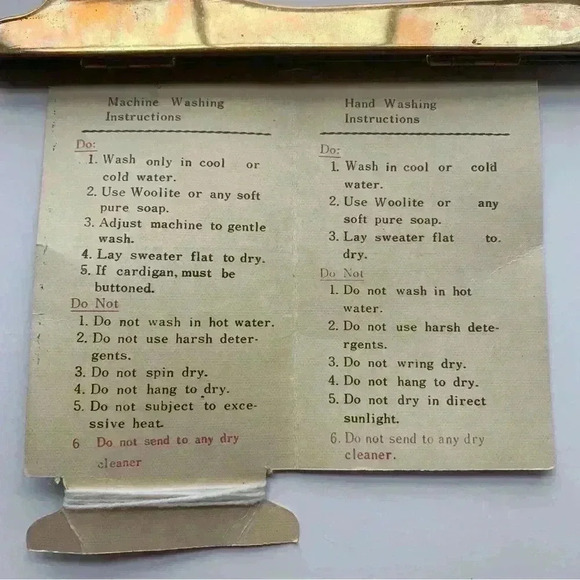 Machine Washing
Instructions
Do:
1. Wash only in cool or
cold water.
2. Use Woolite or any soft
pure soap.
3. Adjust machine to gentle
wash.
4. Lay sweater flat to dry.
5. If cardigan, must be
buttoned.
Do Not
1. Do not wash in hot water.
2. Do not use harsh deter-
gents.
3. Do not spin dry.
4. Do not hang to dry.
5. Do not subject to exce-
ssive heat.
6 Do not send to any dry
cleaner
Hand Washing
Instructions
Do:
1. Wash in cool or cold
water.
2. Use Woolite or any
soft pure soap.
3. Lay sweater flat to.
dry.
Do Not
1. Do not wash in hot
water.
2. Do not use harsh dete-
rgents.
3. Do not wring dry.
4. Do not hang to dry.
5. Do not dry in direct
sunlight.
6. Do not send to any dry
cleaner.